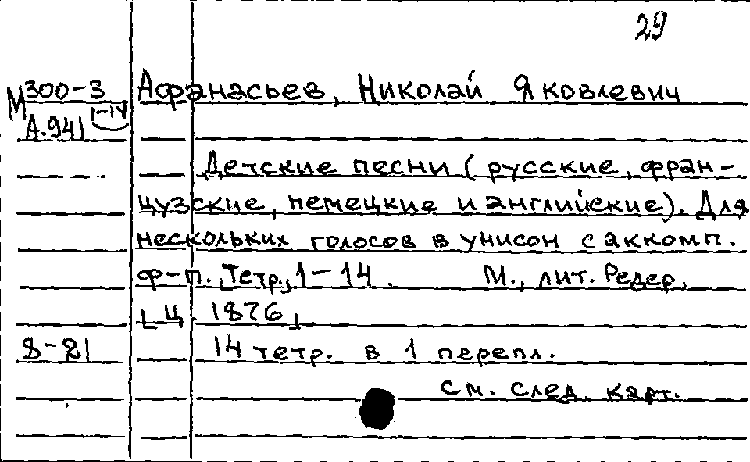 29
М 300-3 Афанасьев, Николай Яковлевич
А.941 1-14
Детские песни (русские, фран-
цузские, немецкие и английские). Для
нескольких голосов в унисон с аккомп.
ф-п. Тетр. 1-14. М., лит. Редер,
[ц. 1876]
8-21 14 тетр. в 1 перепл.
см. след. карт.